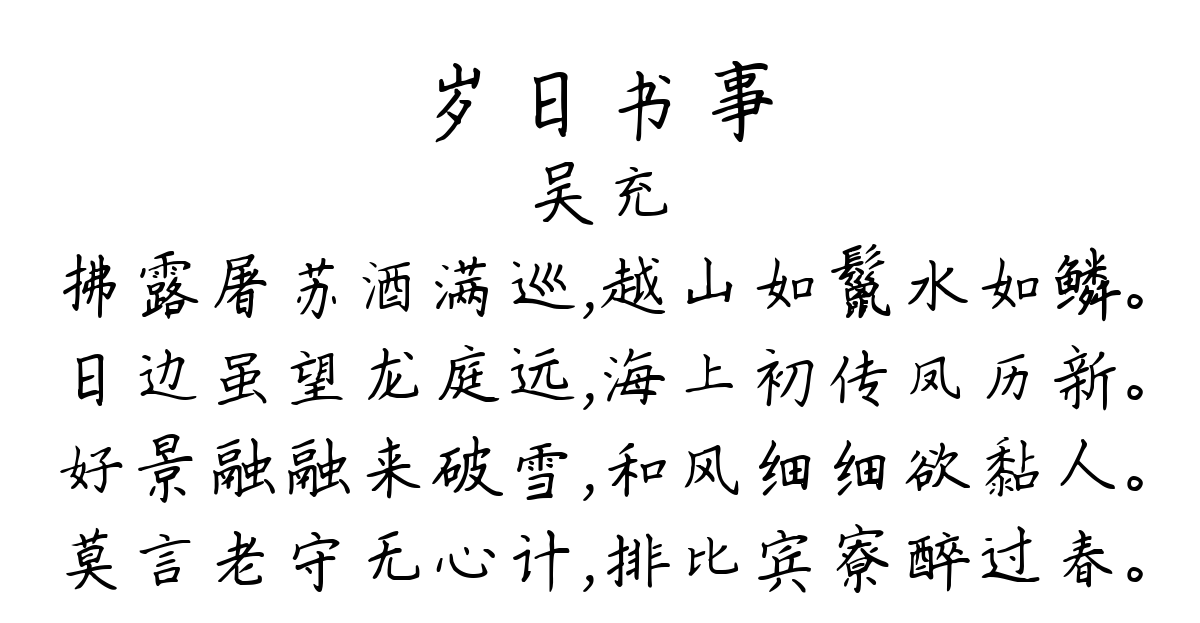 岁日书事
吴充
拂露屠苏酒满巡,越山如鬣水如鳞。
日边虽望龙庭远,海上初传凤历新。
好景融融来破雪,和风细细欲黏人。
莫言老守无心计,排比宾寮醉过春。